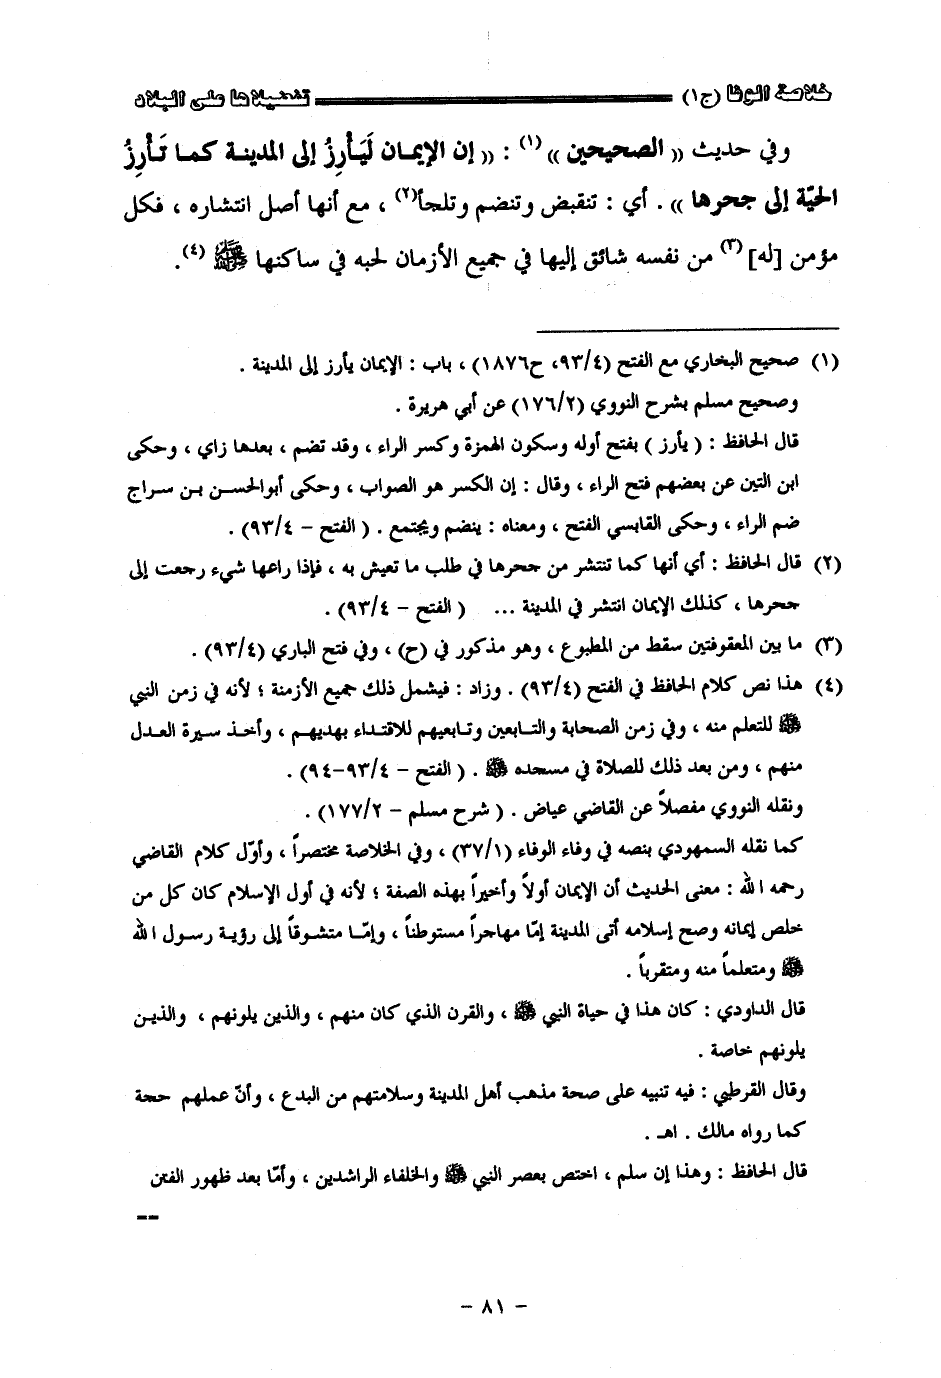 خلاصة الوفا (ج١) تفضيلاها على البلاد
وفي حديث (( الصحيحين )) (١) : (( إن الإيمان لَيَأْرِزُ إلى المدينة كما تَأْرِزُ
الحيّة إلى جحرها )) . أي : تنقبض وتنضم وتلجأ(٢) ، مع أنها أصل انتشاره ، فكل
مؤمن [له] (٣) من نفسه شائق إليها في جميع الأزمان لحبه في ساكنها ﷺ (٤).
(١) صحيح البخاري مع الفتح (٩٣/٤، ح١٨٧٦) ، باب : الإيمان يأرز إلى المدينة .
وصحيح مسلم بشرح النووي (١٧٦/٢) عن أبي هريرة .
قال الحافظ : ( يأرز ) بفتح أوله وسكون الهمزة وكسر الراء ، وقد تضم ، بعدها زاي ، وحكى
ابن التين عن بعضهم فتح الراء ، وقال : إن الكسر هو الصواب ، وحكى أبوالحسن بن سراج
ضم الراء ، وحكى القابسي الفتح ، ومعناه : ينضم ويجتمع . ( الفتح – ٩٣/٤) .
(٢) قال الحافظ : أي أنها كما تنتشر من جحرها في طلب ما تعيش به ، فإذا راعها شيء رجعت إلى
جحرها ، كذلك الإيمان انتشر في المدينة ... ( الفتح – ٩٣/٤) .
(٣) ما بين المعقوفتين سقط من المطبوع ، وهو مذكور في (ح) ، وفي فتح الباري (٩٣/٤) .
(٤) هذا نص كلام الحافظ في الفتح (٩٣/٤) . وزاد : فيشمل ذلك جميع الأزمنة ؛ لأنه في زمن النبي
ﷺ للتعلم منه ، وفي زمن الصحابة والتابعين وتابعيهم للاقتداء بهديهم ، وأخذ سيرة العدل
منهم ، ومن بعد ذلك للصلاة في مسجده ﷺ . ( الفتح – ٩٣/٤–٩٤) .
ونقله النووي مفصلاً عن القاضي عياض . ( شرح مسلم – ١٧٧/٢) .
كما نقله السمهودي بنصه في وفاء الوفاء (٣٧/١) ، وفي الخلاصة مختصراً ، وأوّل كلام القاضي
رحمه الله : معنى الحديث أن الإيمان أولاً وأخيراً بهذه الصفة ؛ لأنه في أول الإسلام كان كل من
خلص إيمانه وصح إسلامه أتى المدينة إمّا مهاجراً مستوطناً ، وإمّا متشوقاً إلى رؤية رسول الله
ﷺ ومتعلماً منه ومتقرباً .
قال الداودي : كان هذا في حياة النبي ﷺ ، والقرن الذي كان منهم ، والذين يلونهم ، والذين
يلونهم خاصة .
وقال القرطبي : فيه تنبيه على صحة مذهب أهل المدينة وسلامتهم من البدع ، وأنّ عملهم حجة
كما رواه مالك . اهـ .
قال الحافظ : وهذا إن سلم ، اختص بعصر النبي ﷺ والخلفاء الراشدين ، وأمّا بعد ظهور الفتن
––
– ٨١ –